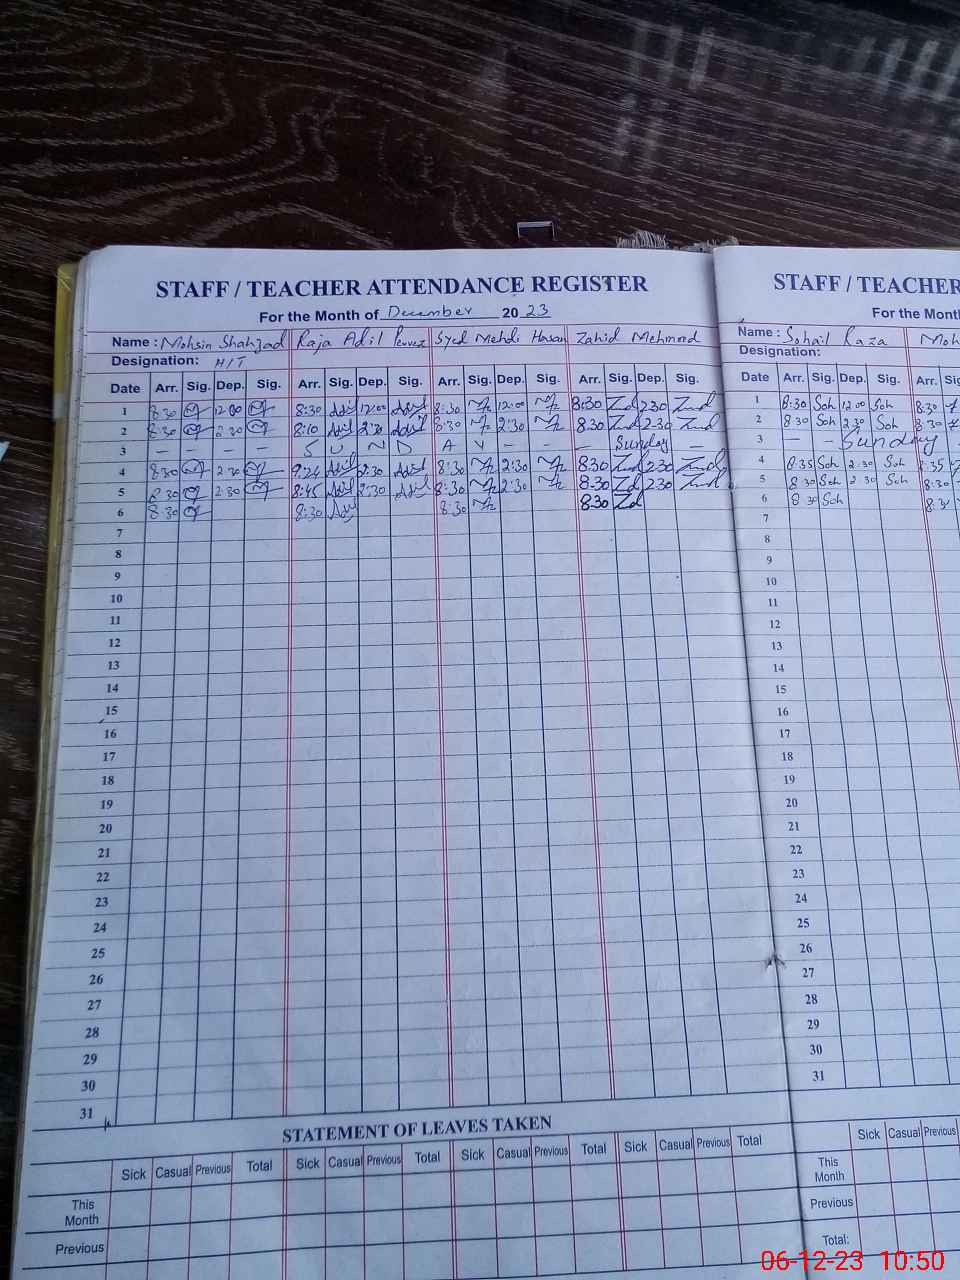 STAFF / TEACHER ATTENDANCE REGISTER
For the Month of December 2023
Name : Mohsin Shahzad Raja Adil Pervez Syed Mehdi Hasan Zahid Mehmood
Designation: H/T
Date Arr. Sig. Dep. Sig. Arr. Sig. Dep. Sig. Arr. Sig. Dep. Sig. Arr. Sig. Dep. Sig.
1 8:30 12:00 8:30 Adil 12:00 Adil 8:30 12:00 8:30 Zd 2:30 Zmd
2 8:30 2:30 8:10 Adil 2:30 Adil 8:30 2:30 8:30 Zd 2:30 Zmd
3 — — — — S U N D A Y - - — Sunday —
4 8:30 2:30 9:24 Adil 2:30 Adil 8:30 2:30 8:30 Zd 2:30 Zmd
5 8:30 2:30 8:45 Adil 2:30 Adil 8:30 2:30 8:30 Zd 2:30 Zmd
6 8:30 8:30 Adil 8:30 8:30 Zd
7
8
9
10
11
12
13
14
15
16
17
18
19
20
21
22
23
24
25
26
27
28
29
30
31
STATEMENT OF LEAVES TAKEN
Sick Casual Previous Total Sick Casual Previous Total Sick Casual Previous Total Sick Casual Previous Total
This Month
Previous
STAFF / TEACHER
For the Mont
Name : Sohail Raza Moh
Designation:
Date Arr. Sig. Dep. Sig. Arr. Sig
1 8:30 Soh 12:00 Soh 8:30
2 8:30 Soh 2:30 Soh 8:30
3 — - Sunday
4 8:35 Soh 2:30 Soh 8:35
5 8:30 Soh 2:30 Soh 8:30
6 8:30 Soh 8:3
7
8
9
10
11
12
13
14
15
16
17
18
19
20
21
22
23
24
25
26
27
28
29
30
31
Sick Casual Previous
This Month
Previous
Total:
06-12-23 10:50